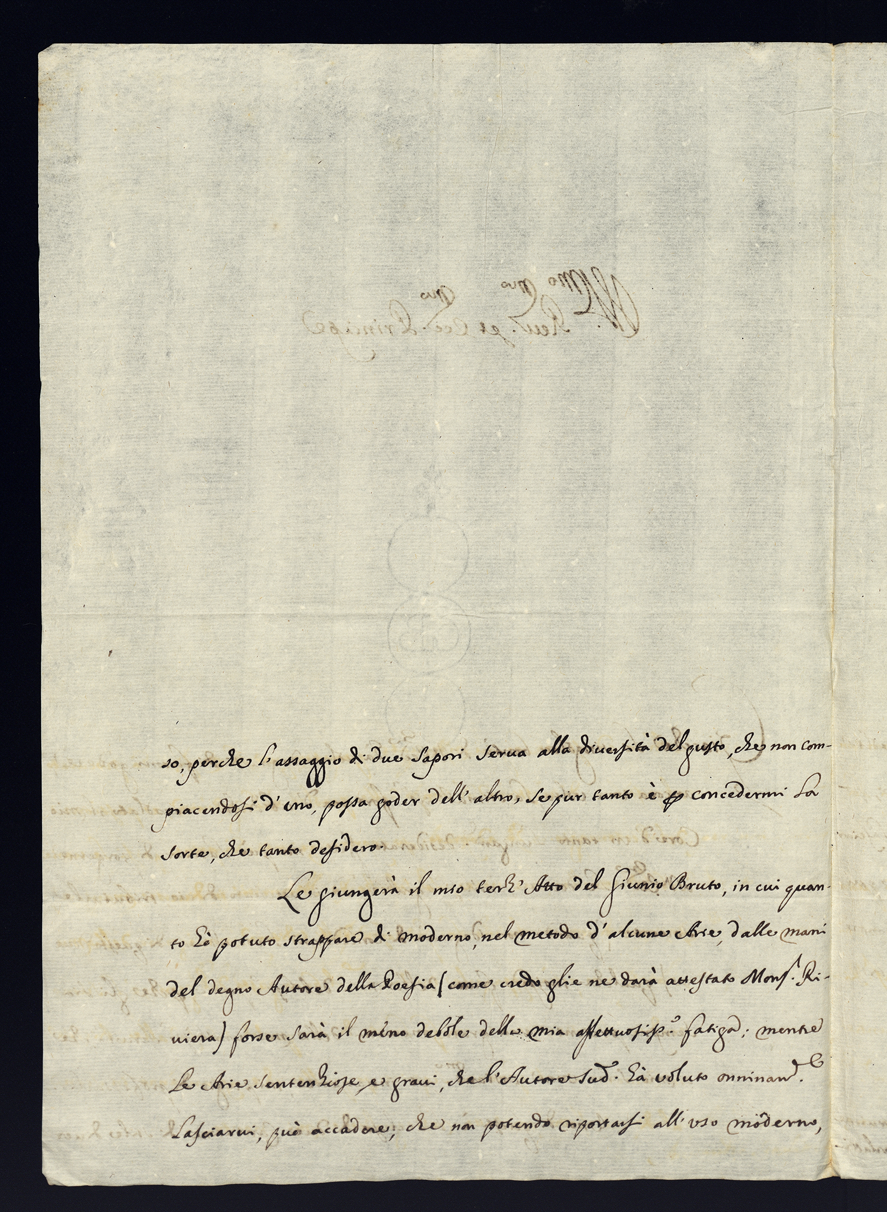 so, perche l'assaggio di due sapori serua alla diuersità del gusto, che non com-
piacendosi d'uno, possa goder dell'altro, se pur tanto è p concedermi La
sorte, che tanto desidero.
Le giungerà il mio terz'Atto del Giunio Bruto, in cui quan-
to hò potuto strappare di moderno, nel metodo d'alcune Arie, dalle mani
del degno Autore della Poesia (come credo glie ne darà attestato Mons.r Ri-
uiera) forse sarà il meno debole della mia affettuosiss.a fatiga; mentre
Le Arie sentenziose, e graui, che l'Autore Sud.o hà voluto onninam.te
Lasciarui, può accadere, che non potendo riportarsi all'vso moderno,